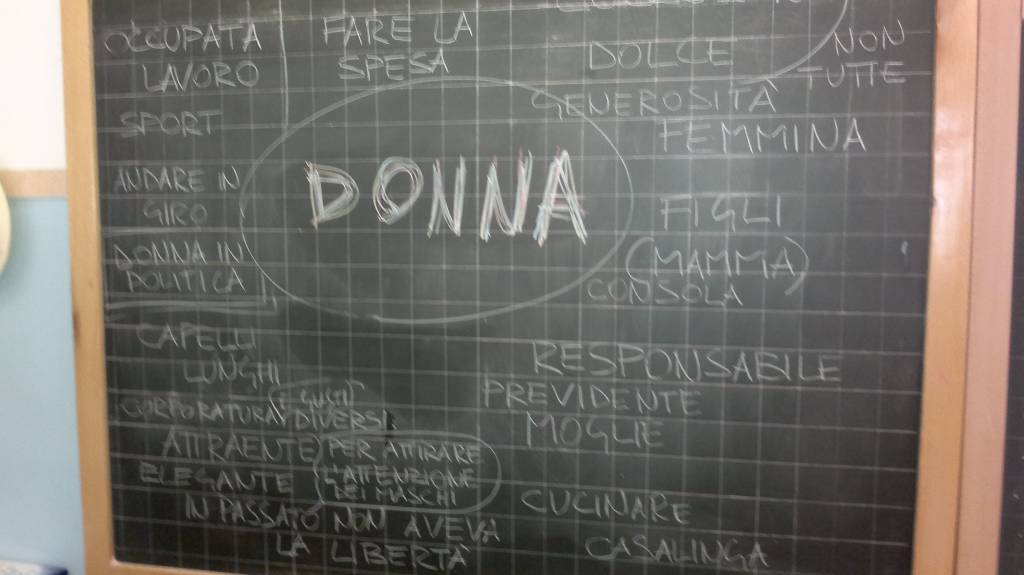 OCCUPATA
LAVORO
SPORT
ANDARE IN
GIRO
DONNA IN
POLITICA
FARE LA
SPESA
DOLCE
NON
TUTTE
GENEROSITÀ
FEMMINA
DONNA
FIGLI
(MAMMA)
CONSOLA
CAPELLI
LUNGHI
(I GUSTI)
CORPORATURA DIVERSI
ATTRAENTE PER ATTIRARE
ELEGANTE L'ATTENZIONE
DEI MASCHI
IN PASSATO NON AVEVA
LA LIBERTÀ
RESPONSABILE
PREVIDENTE
MOGLIE
CUCINARE
CASALINGA